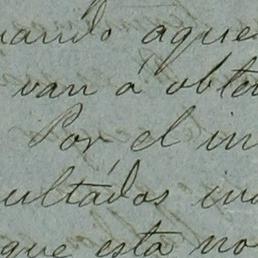 uando aque
van á obte
Por el in
ultados in
que esta no